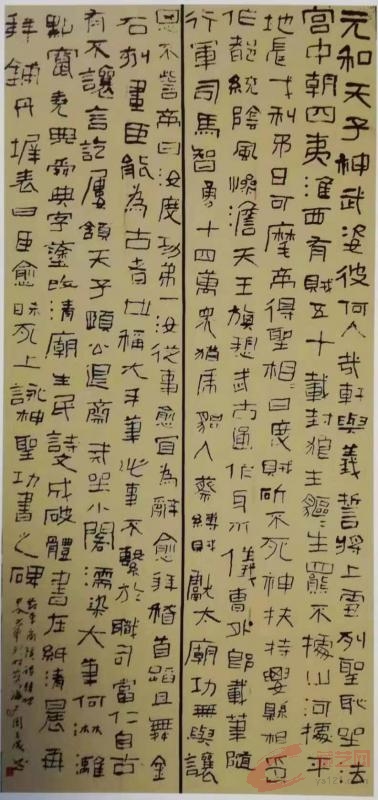 元和天子神武姿彼何人哉軒與羲誓將上雪列聖恥坐法
宮中朝四夷淮西有賊五十載封狼生貙生羆不據山河據平
地長戈利矛日可麾帝得聖相曰度賊斫不死神扶持腰懸相印
作都統陰風慘澹天王旗愬武古通作牙爪儀曹外郎載筆隨
行軍司馬智勇十四萬衆猶虎貔入蔡縛賊獻太廟功無與讓
恩不訾帝曰汝度功第一汝從事愈宜為辭愈拜稽首蹈且舞金
石刻畫臣能為古者世稱大手筆此事不繫於職司當仁自古
有不讓言訖屢頷天子頤公退齋戒坐小閣濡染大筆何淋漓
點竄堯典舜典字塗改清廟生民詩文成破體書在紙清晨再
拜鋪丹墀表曰臣愈昧死上詠神聖功書之碑